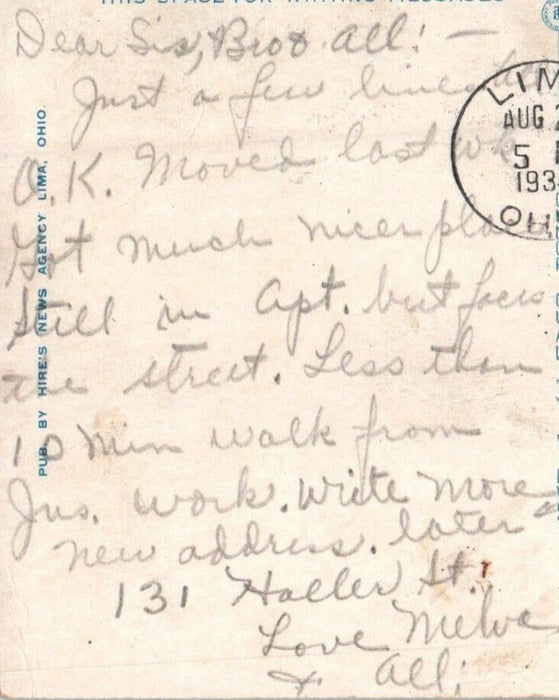 THIS SPACE FOR WRITING MESSAGES
Dear Sis, Bro & All! —
Just a few lines
O.K. Moved last
Got much nicer place
still in Apt. but faces
the street. Less than
10 min walk from
Jus. work. Write more
later
new address.
131 Haller St.
Love Melva
& All.
PUB. BY HIRE'S NEWS AGENCY LIMA, OHIO.
LIM
AUG
5
193
OH